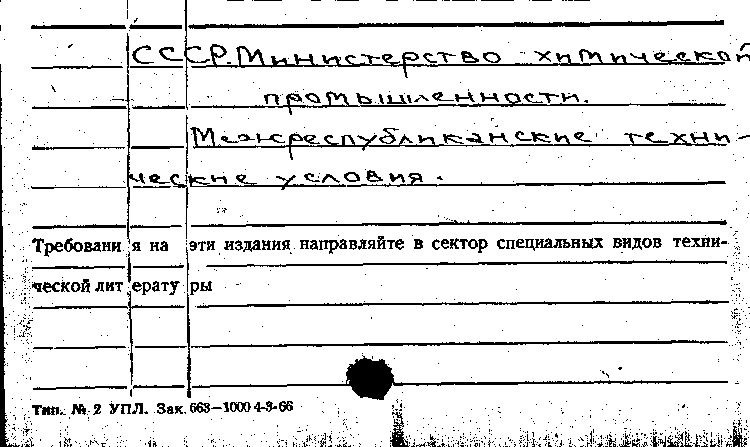 СССР. Министерство химической
промышленности.
Межреспубликанские техни-
ческие условия.
Требования на эти издания направляйте в сектор специальных видов техни-
ческой литературы
Тип. № 2 УПЛ. Зак. 663—1000 4-3-66